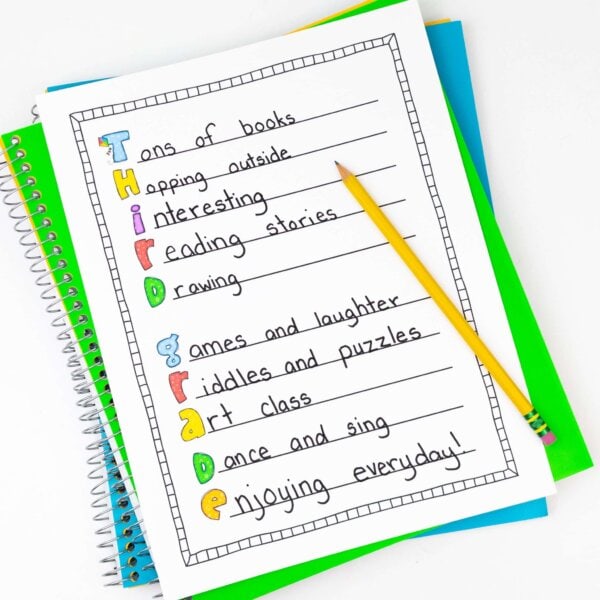 Tons of books
Hopping outside
interesting
reading stories
Drawing
games and laughter
riddles and puzzles
art class
Dance and sing
enjoying everyday!